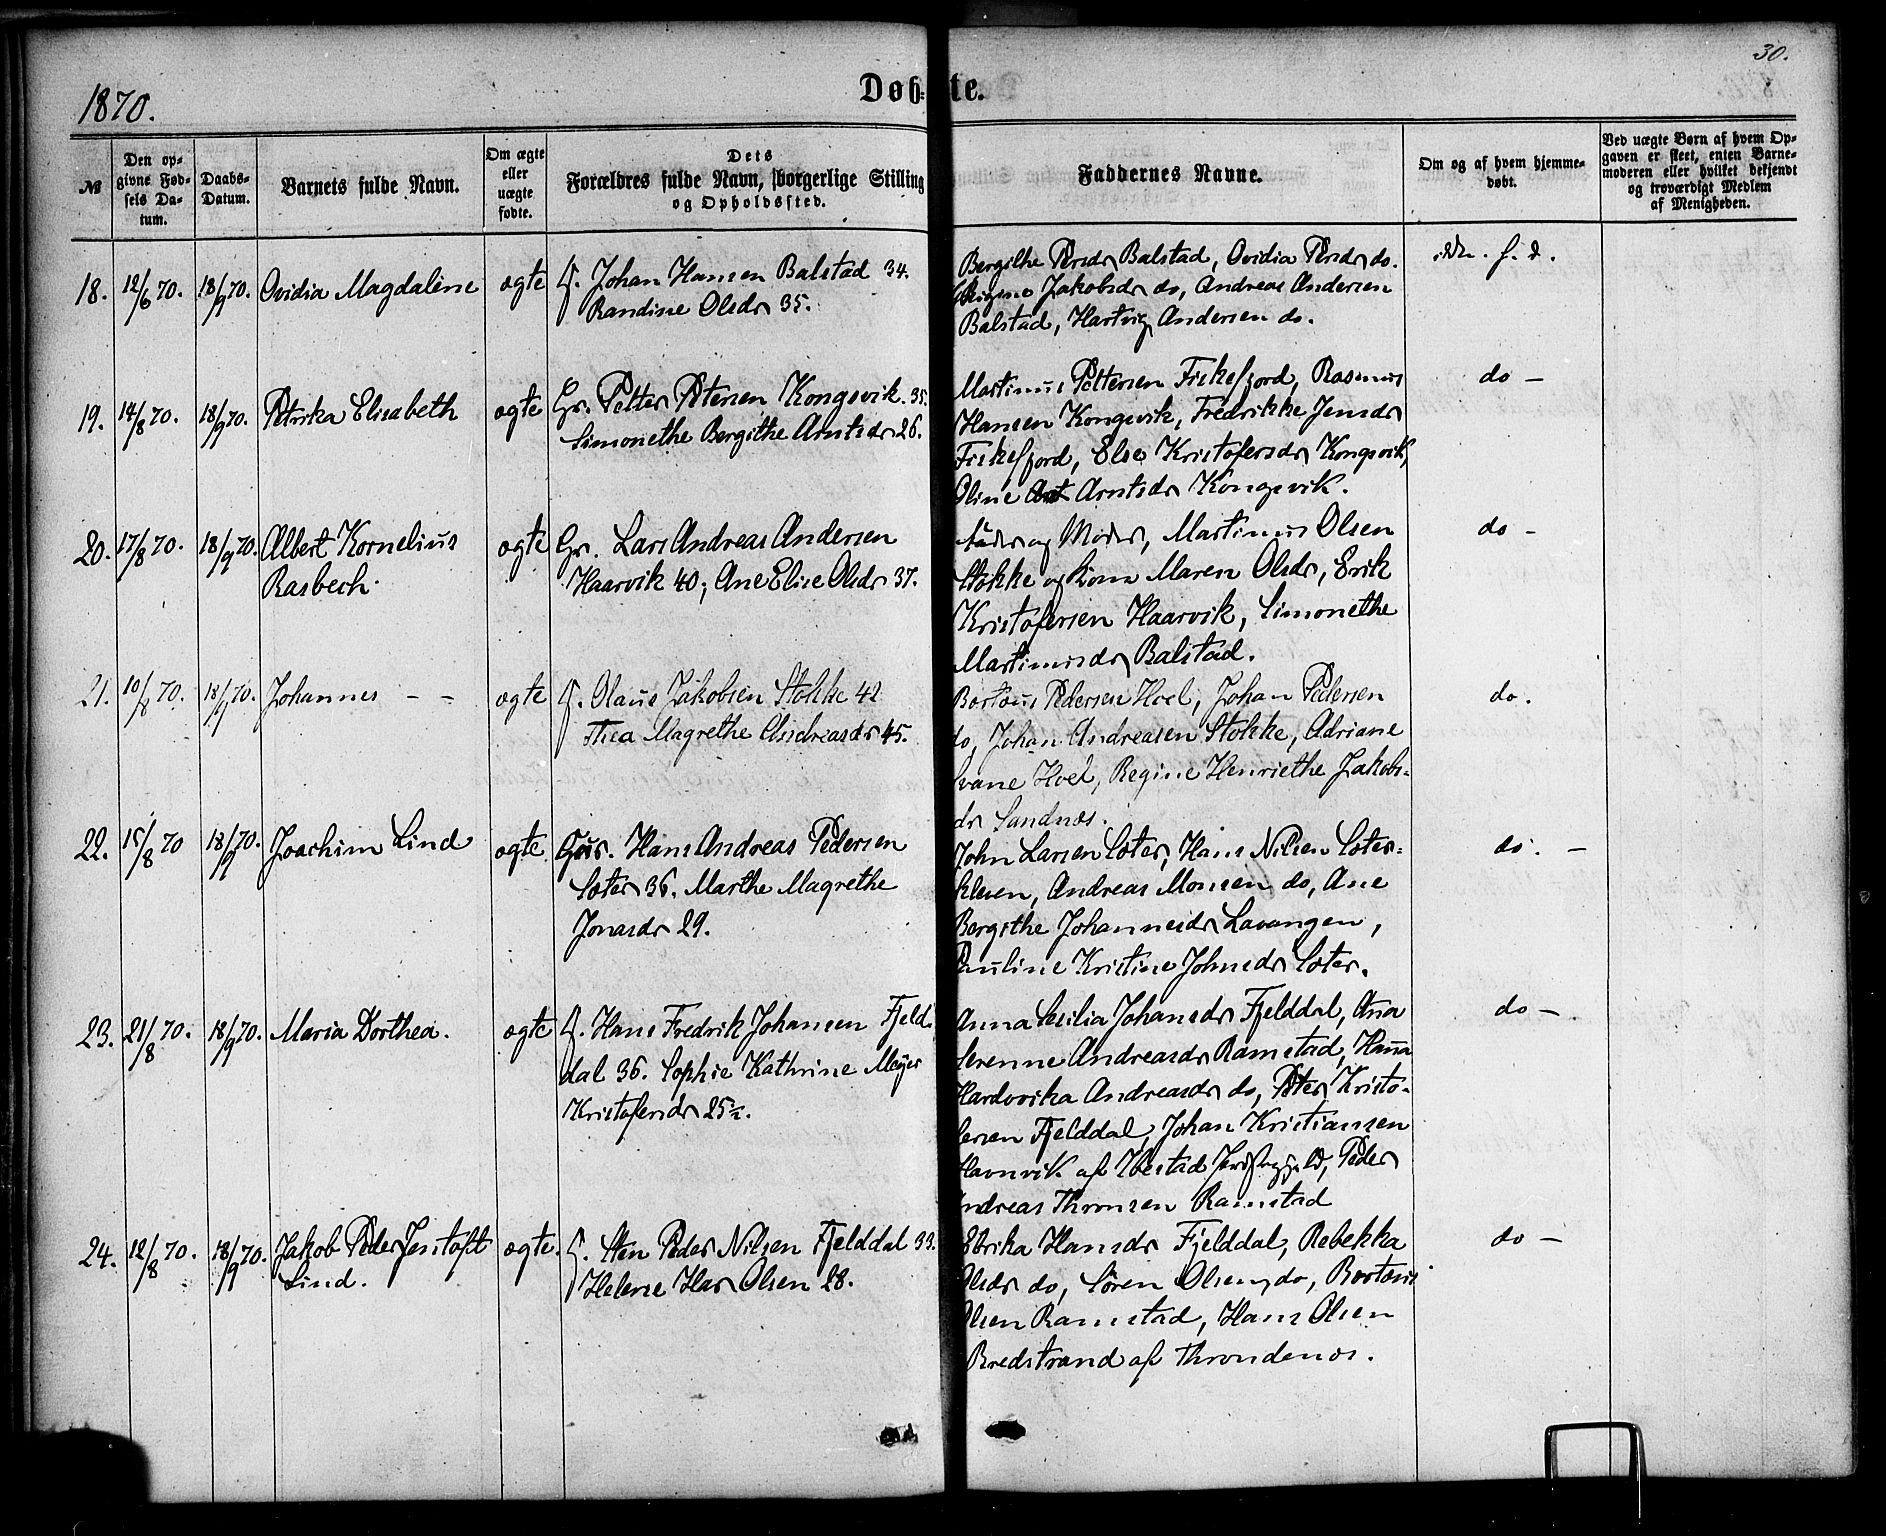 30.
1870.
Døbte.
№
Den opgivne Fødsels Datum.
Daabs-Datum.
Barnets fulde Navn.
Om ægte eller uægte fødte.
Dets Forældres fulde Navn, borgerlige Stilling og Opholdssted.
Faddernes Navne.
Om og af hvem hjemmedøbt.
Ved uægte Børn af hvem Opgaven er skeet, enten Barnemoderen eller hvilket bekjendt og troværdigt Medlem af Menigheden.
18. 12/6 70. 18/9 70. Ovidia Magdalene ægte
Johan Hansen Balstad 34.
Randine Olsdr 35.
Bergithe Persdr Balstad, Ovidia Persdr do.
Jakobsdr do, Andreas Andersen
Balstad, Hartvig Andersen do.
19. 14/8 70. 18/9 70. Petrika Elisabeth ægte
Gr. Petter Petersen Kongsvik. 35.
Simonethe Bergithe Arntsdr 26.
Martinus Pettersen Fiskefjord, Rasmus
Hansen Kongsvik, Fredrikke Jensdr
Fiskefjord, Else Kristofersdr Kongsvik,
Oline Arntsdr Kongsvik.
do –
20. 17/8 70. 18/9 70. Albert Kornelius
Rasbech. ægte
Gr. Lars Andreas Andersen
Haarvik 40; Ane Elise Olsdr 37.
Fader og Moder, Martinus Olsen
Stokke og Kone Maren Olsdr, Erik
Kristofersen Haarvik, Simonethe
Martinusdr Balstad.
do –
21. 10/8 70. 18/9 70. Johannes – – ægte
Olaus Jakobsen Stokke 42
Thea Magrethe Andreasdr 45.
Bortous Pedersen Hoel, Johan Pedersen
do, Johan Andreasen Stokke, Adriane
Hoel, Regine Henriethe Jakobs-
dr Sandnæs.
do.
22. 15/8 70 18/9 70. Joachim Lind ægte
Hans Andreas Pedersen
Sæter 36. Marthe Magrethe
Jonasdr 29.
John Larsen Sæter, Hans Nilsen Sæter-
Andreas Monsen do, Ane
Bergithe Johannesdr Lavangen,
Pauline Kristine Johnsdr Sæter.
do. –
23. 21/8 70. 18/9 70. Maria Dorthea. ægte
Hans Fredrik Johansen Fjeld-
dal 36. Sophie Kathrine Meyer
Kristofersdr 25½.
Anna Sesilia Johansdr Fjelddal, Ana
Serenne Andreasdr Ramstad, Hana
Hardovika Andreasdr do, Peter Kristo-
fersen Fjelddal, Johan Kristiansen
Havnvik af Ibestad Peder
Andreas Thronsen Ramstad
do –
24. 12/8 70. 18/9 70. Jakob Peder Jentoft
Lind. ægte.
Sten Peder Nilsen Fjelddal 33.
Helene Olsen 28.
Edrika Hansdr Fjelddal, Rebekka
Olsdr do, Sören Olsen do, Bortous
Olsen Ramstad, Hans Olsen
Bredstrand af Throndenæs.
do –